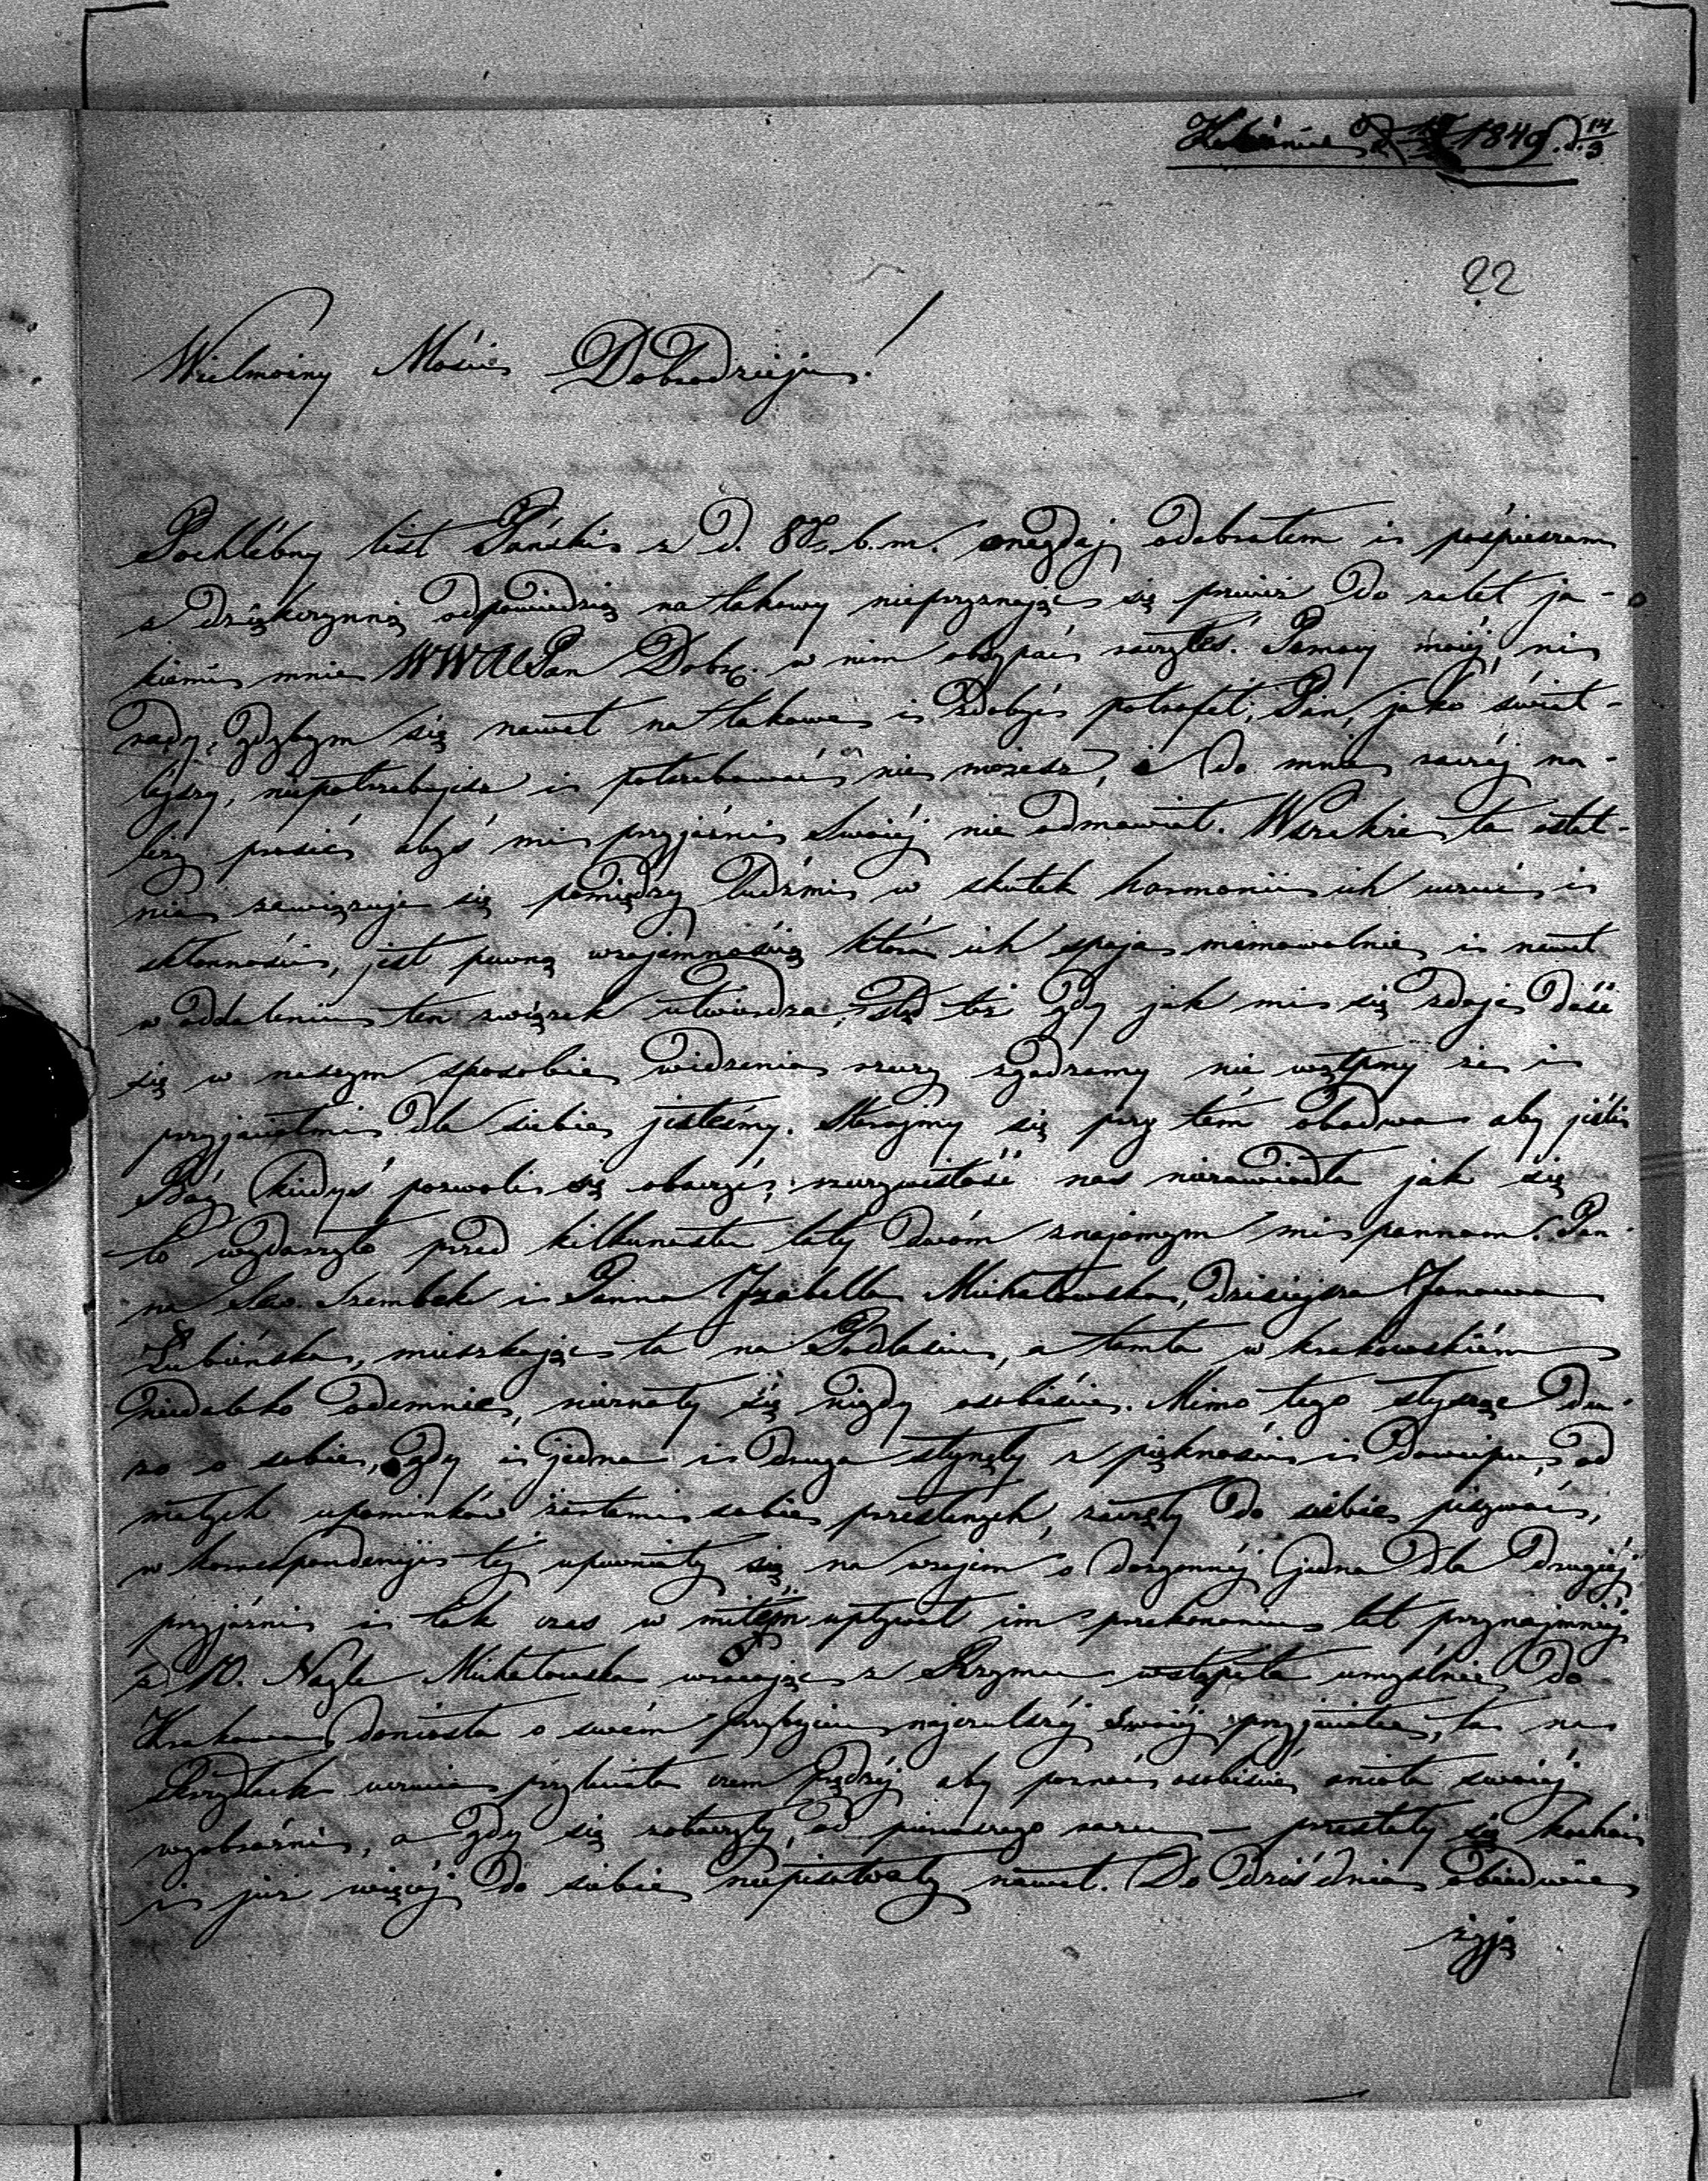 1849. d. 14/3
22
Wielmożny Mości Dobrodzieju!
Pochlébny list Pański z d. 8go b.m. onegdaj odebrałem i pośpieszam
z dziękczynną odpowiedzią na takowy nieprzyznając się przecież do zalet ja-
kiemi mnie WWMPan Dobr. w nim obsypać raczyłeś. Pomocy mojéj, ni
rady, gdybym się nawet na takowe i zdobyć potrafił, Pan, jako świat-
lejszy, niepotrzebujesz i potrzebować nie możesz, i do mnie raczéj na-
leży prosić abyś mi przyjaźni Swoiéj nie odmawiał. Wszakże ta ostat-
nia zawięzuje się pomiędzy ludźmi w skutek harmonii ich uczuć i
skłonności, jest pewną wzajemnością która ich spaja mimowolnie i nawet
w oddaleniu ten związek utwierdza; ztąd też gdy jak mi się zdaje dość
się w naszym sposobie widzenia rzeczy zgadzamy nie wątpmy że i
przyjaciołmi dla siebie jesteśmy. Starajmy się przy tém obadwa aby jeśli
Bóg kiedyś pozwoli się obaczyć, rzeczywistość nas niezawiodła jak się
to wydarzyło przed kilkunastu laty dwóm znajomym mi pannom. Pan-
na Sew. Szembek i Panna Izabella Michałowska, dzisiejsza Janowa
Łubieńska, mieszkając ta na Podlasiu, a tamta w krakowskiém
niedaleko odemnie, nieznały się nigdy osobiście. Mimo tego słysząc du-
żo o sobie, gdy i jedna i druga słynęły z piękności i dowcipu, od
małych upominków żartem sobie przesłanych, zaczęły do siebie pisywać,
w korrespondencyi téj upewniały się na wzajem o dozgonnéj jedna dla drugiéj
przyjaźni i tak czas w miłém upływał im przekonaniu lat przynajmniéj
z 10. Nagle Michałowska wracając z Rzymu wstąpiła umyślnie do
Krakowa, doniosła o swém przybyciu najczulszéj swoiéj przyjaciołce, ta na
skrzydłach uczucia przyleciała czem prędzéj aby poznać osobiście anioła swoiéj
wyobraźni, a gdy się zobaczyły, od pierwszego razu — przestały się kochać
i już więcéj do siebie niepisywały nawet. Do dziś dnia obiedwie
żyją